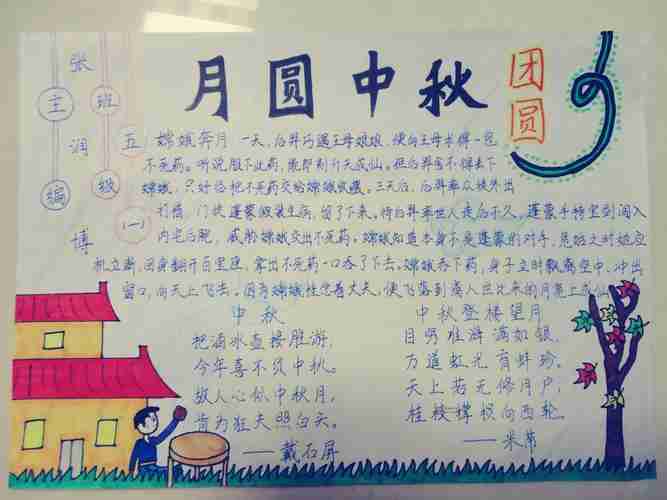 月圆中秋
团圆
主编
张润博
班级
五(一)
嫦娥奔月 一天,后羿巧遇王母娘娘,便向王母求得一包
不死药。听说服下此药,能即刻升天成仙。但后羿舍不得丢下
嫦娥,只好将把不死药交给嫦娥收藏。三天后,后羿率众徒外出
打猎,门徒蓬蒙假装生病,留了下来。待后羿率众人走后不久,蓬蒙手持宝剑闯入
内宅后院,威胁嫦娥交出不死药。嫦娥知道本身不是蓬蒙的对手,危难之时她应
机立断,回身翻开百宝匣,拿出不死药一口吞了下去。嫦娥吞下药,身子立时飘离空中、冲出
窗口,向天上飞去。因为嫦娥惦念着丈夫,便飞落到离人世比来的月亮上成仙
中秋
把酒冰壶接胜游,
今年喜不负中秋。
故人心似中秋月,
肯为狂夫照白头。
——戴石屏
中秋登楼望月
目穷淮海满如银,
万道虹光育蚌珍。
天上若无修月户,
桂枝撑损向西轮。
——米芾